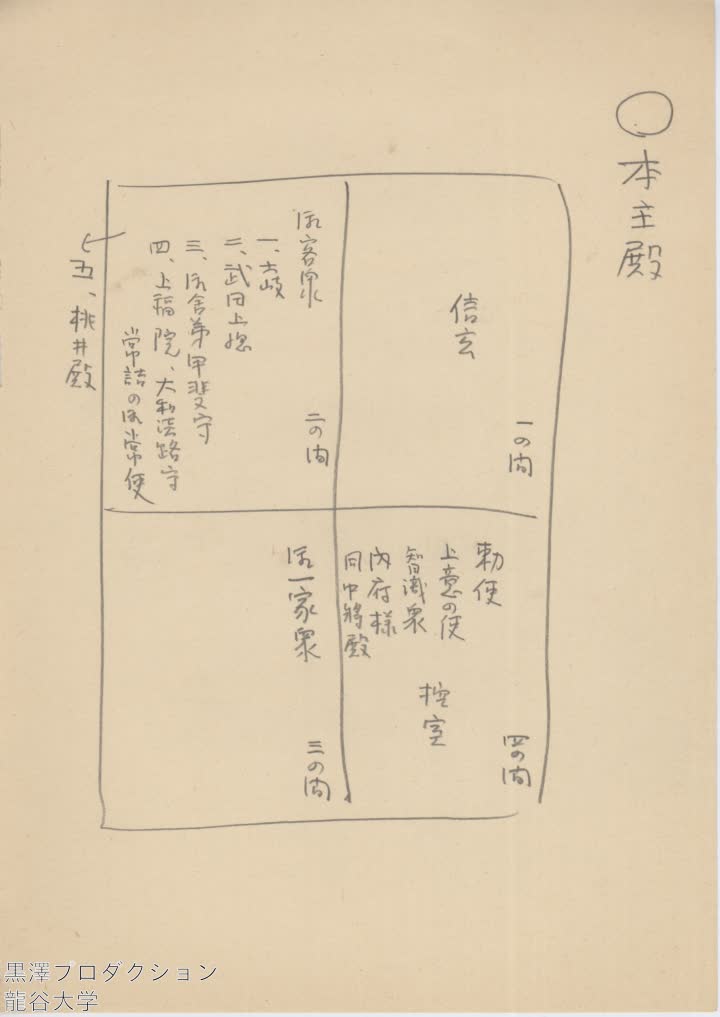 ○本主殿
信玄
一の間
御客衆
一、土岐
二、武田上総
三、御舎弟甲斐守
四、上福院、大和淡路守
常詰の御常使
五、桃井殿
二の間
勅使
上意の使
智識衆
内府様
同中将殿
控室
四の間
御一家衆
三の間
黒澤プロダクション
龍谷大学